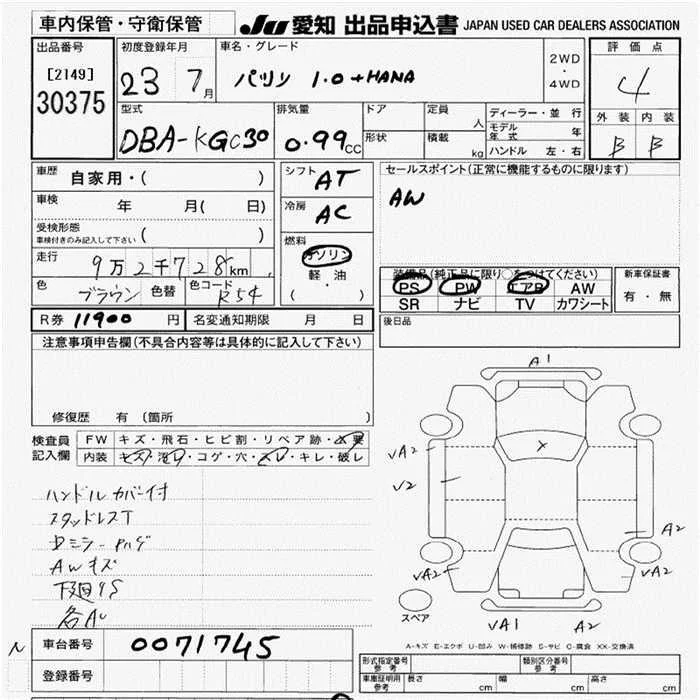 車内保管・守衛保管 JU 愛知 出品申込書 JAPAN USED CAR DEALERS ASSOCIATION
出品番号 初度登録年月 車名・グレード 2WD・4WD 評価点
[2149] 23 7月 パッソ 1.0 +HANA 4
30375
型式 排気量 ドア 定員 人 ディーラー・並行 外装 内装
DBA-KGC30 0.99CC 形状 積載 kg モデル年式 年 B B
ハンドル 左・右
車歴 自家用・( ) シフト AT セールスポイント(正常に機能するものに限ります)
車検 年 月( 日) 冷房 AC AW
受検形態 ( )
車検付きのみ記入して下さい
燃料
走行 9万2千728km ガソリン 装備品(純正品に限り○をつけてください) 新車保証書
色 ブラウン 色替 色コード R54 軽油 PS PW エアB AW 有・無
( ・ ) SR ナビ TV カワシート
R券 11900円 名変通知期限 月 日 後日品
注意事項申告欄(不具合内容等は具体的に記入して下さい)
修復歴 有 (箇所
検査員記入欄 FW キズ・飛石・ヒビ割・リペア跡・X要
内装 キズ・汚レ・コゲ・穴・スレ・キレ・破レ
ハンドルカバー付
スタッドレスT
AWキズ
下廻りS
A1
VA2
V2
X
A2
VA2
VA2
スペア
VA1 A2
A-キズ E-エクボ U-凹み W-補修跡 S-サビ C-腐食 XX-交換済
N 車台番号 0071745
登録番号
形式指定番号 参考 類別区分番号 参考
車庫証明用 参考 長さ cm 幅 cm 高さ cm